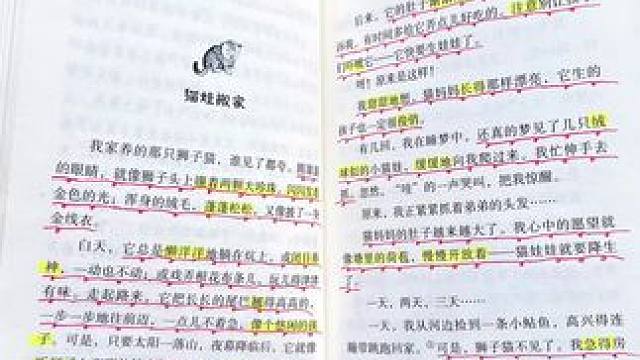 猫娃搬家
我家养的那只狮子猫，谁见了都夸。
的眼睛，就像狮子头上镶着两颗大珍珠，闪闪发
金色的光；浑身的绒毛，蓬蓬松松，又像披了一
金线衣。
白天，它总是懒洋洋地躺在炕上，或闭目养
神，一动也不动；或戏弄醉花布条儿，玩儿得津津
有味。走起路来，它把长长的尾巴翘得高高的，
一步一步地往前迈，一点儿不着急，像个悠闲的
子。可是，只要太阳一落山，夜幕降临后，它就
后来，它的肚子
诉我，有时间多给它弄点儿好吃的，注意别让孩子
们吓唬它——它快要生娃娃了。
呀！原来是这样！
我甜甜地想，猫妈妈长得那样漂亮，它生的
孩子也一定很俊俏。
有几回，我在睡梦中，还真的梦见了几只绒
球似的小猫娃，缓缓地向我爬过来。我忙伸手去
忽然，“哇”的一声哭叫，把我惊醒。
原来，我正紧紧抓着弟弟的头发……
猫妈妈的肚子越来越大了。我心中的愿望就
像塘里的荷苞，慢慢开放着——猫娃娃就要降生
了。
一天，两天，三天……
一天，我从河边捡到一条小鲇鱼，高兴得连
蹦带跳跑回家。可是，狮子猫不见了。我急得房